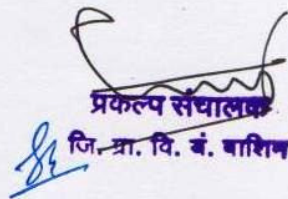 प्रकल्प संचालक
जि. ग्रा. वि. यं. वाशिम